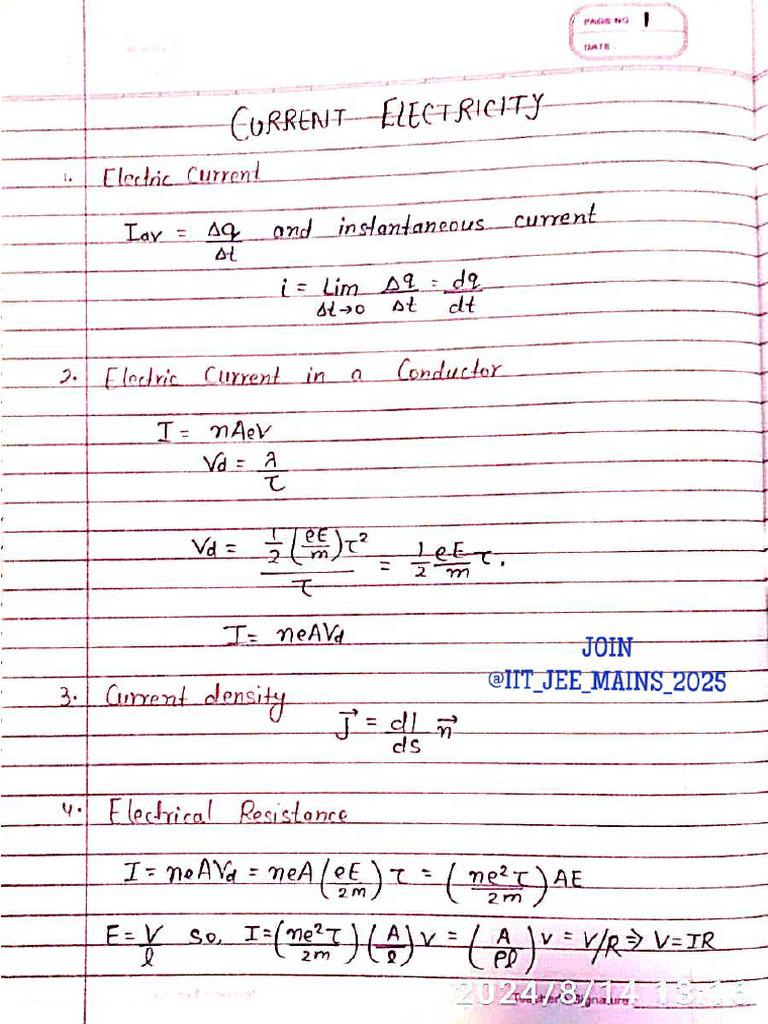 PAGE NO 1
DATE
CURRENT ELECTRICITY
1. Electric Current
Iav = Δq/Δt and instantaneous current
i = Lim Δt→0 Δq/Δt = dq/dt
2. Electric Current in a Conductor
I = nAeV
Vd = λ/τ
Vd = ½(eE/m)τ²/τ = ½ eE/m τ.
I = neAVd
JOIN
@IIT_JEE_MAINS_2025
3. Current density
J⃗ = dI/ds n⃗
4. Electrical Resistance
I = neAVd = neA(eE/2m)τ = (ne²τ/2m)AE
E = V/l so, I = (ne²τ/2m)(A/l)V = (A/ρl)V = V/R ⇒ V = IR
Teacher's Signature
2024/8/14 18:13